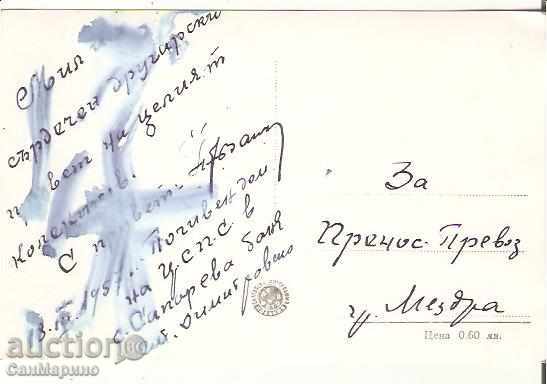 Мил
сърдечен другарски
привет на целият
колектив.
С привет:
13.IV.1957г. Почивен дом
на ЦСПС в
с. Сапарева баня
ст. Димитровско
За
Пренос-Превоз
гр. Мездра
Цена 0.60 лв.
auction
СанМарино